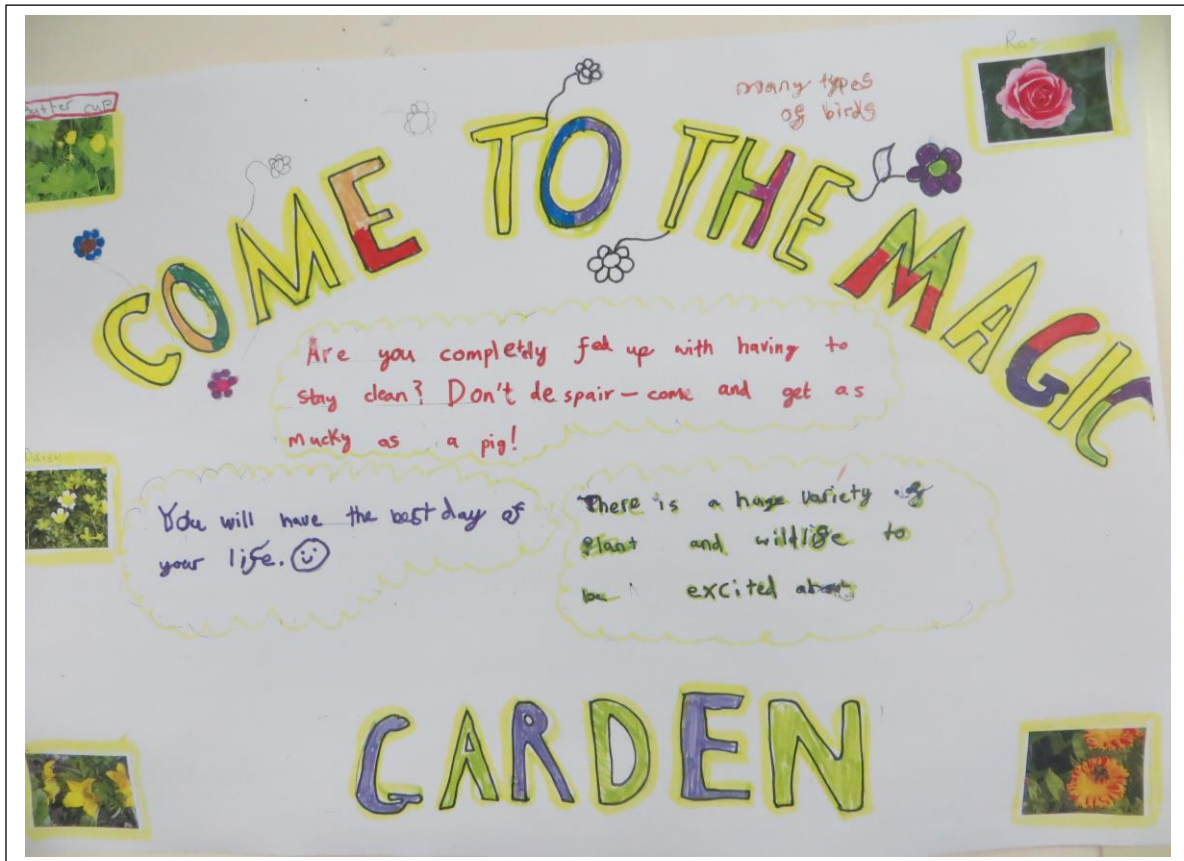 Ros
many types
of birds
butter cup
COME TO THE MAGIC
Are you completly fed up with having to
stay clean? Don't despair - come and get as
mucky as a pig!
Daisy
You will have the best day of
your life.
There is a huge variety of
plant and wildlife to
be excited about
GARDEN